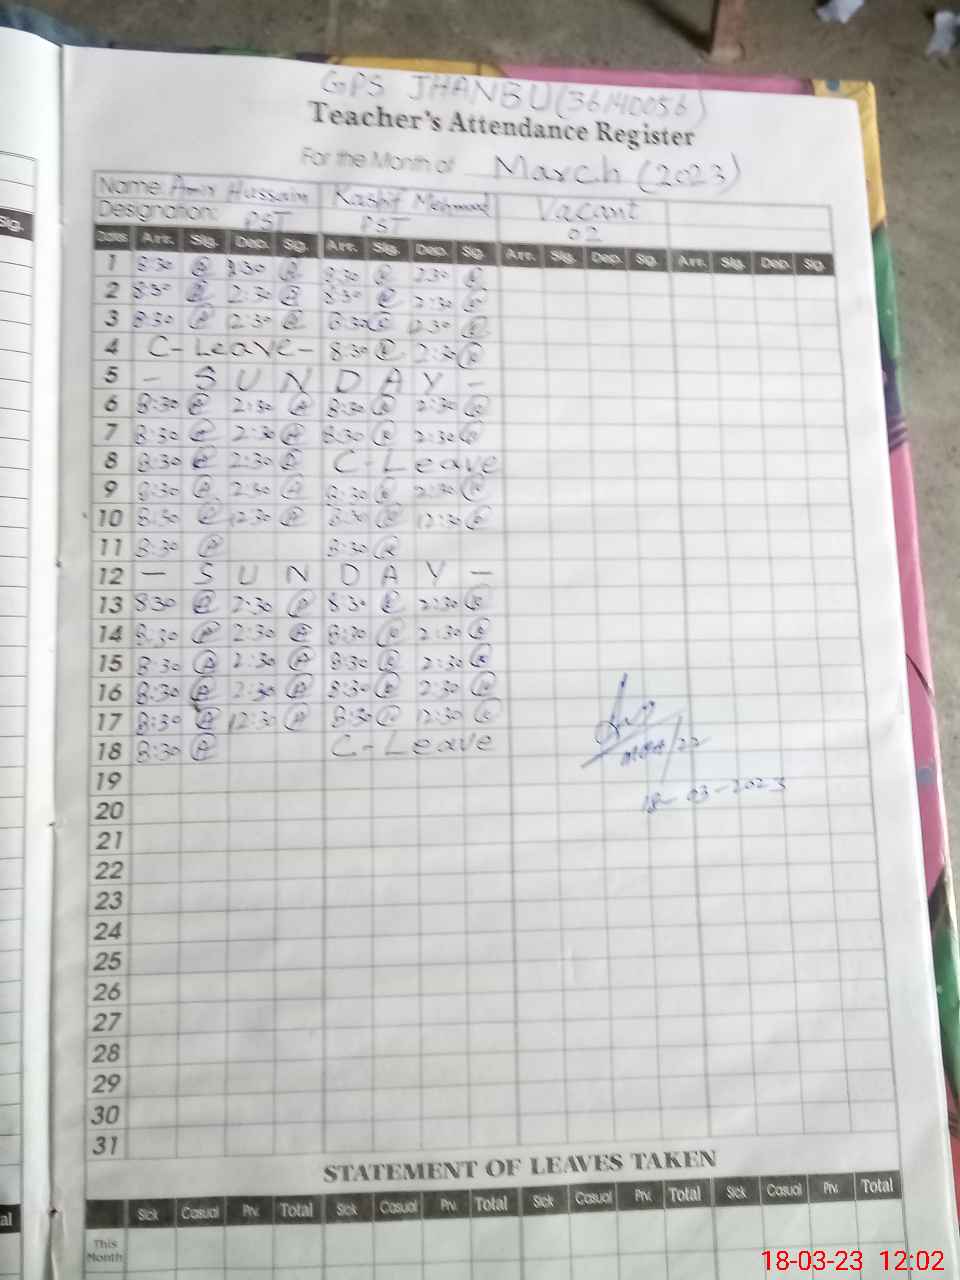 GPS JHANBU (36140056)
Teacher's Attendance Register
For the Month of March (2023)
Name: Amir Hussain Kashif Mehmood Vacant
Designation: PST PST 02
Date Arr. Sig. Dep. Sig. Arr. Sig. Dep. Sig. Arr. Sig. Dep. Sig. Arr. Sig. Dep. Sig.
1 8:30 2:30 8:30 2:30
2 8:30 2:30 8:30 2:30
3 8:30 12:30 8:30 12:30
4 C-Leave- 8:30 2:30
5 - SUNDAY -
6 8:30 2:30 8:30 2:30
7 8:30 2:30 8:30 2:30
8 8:30 2:30 C-Leave
9 8:30 2:30 8:30 2:30
10 8:30 12:30 8:30 12:30
11 8:30 8:30
12 - SUNDAY -
13 8:30 2:30 8:30 2:30
14 8:30 2:30 8:30 2:30
15 8:30 2:30 8:30 2:30
16 8:30 2:30 8:30 2:30
17 8:30 12:30 8:30 12:30
18 8:30 C-Leave
18-03-2023
19
20
21
22
23
24
25
26
27
28
29
30
31
STATEMENT OF LEAVES TAKEN
Sick Casual Prv. Total Sick Casual Prv. Total Sick Casual Prv. Total Sick Casual Prv. Total
This
Month
18-03-23 12:02
Sig.
al